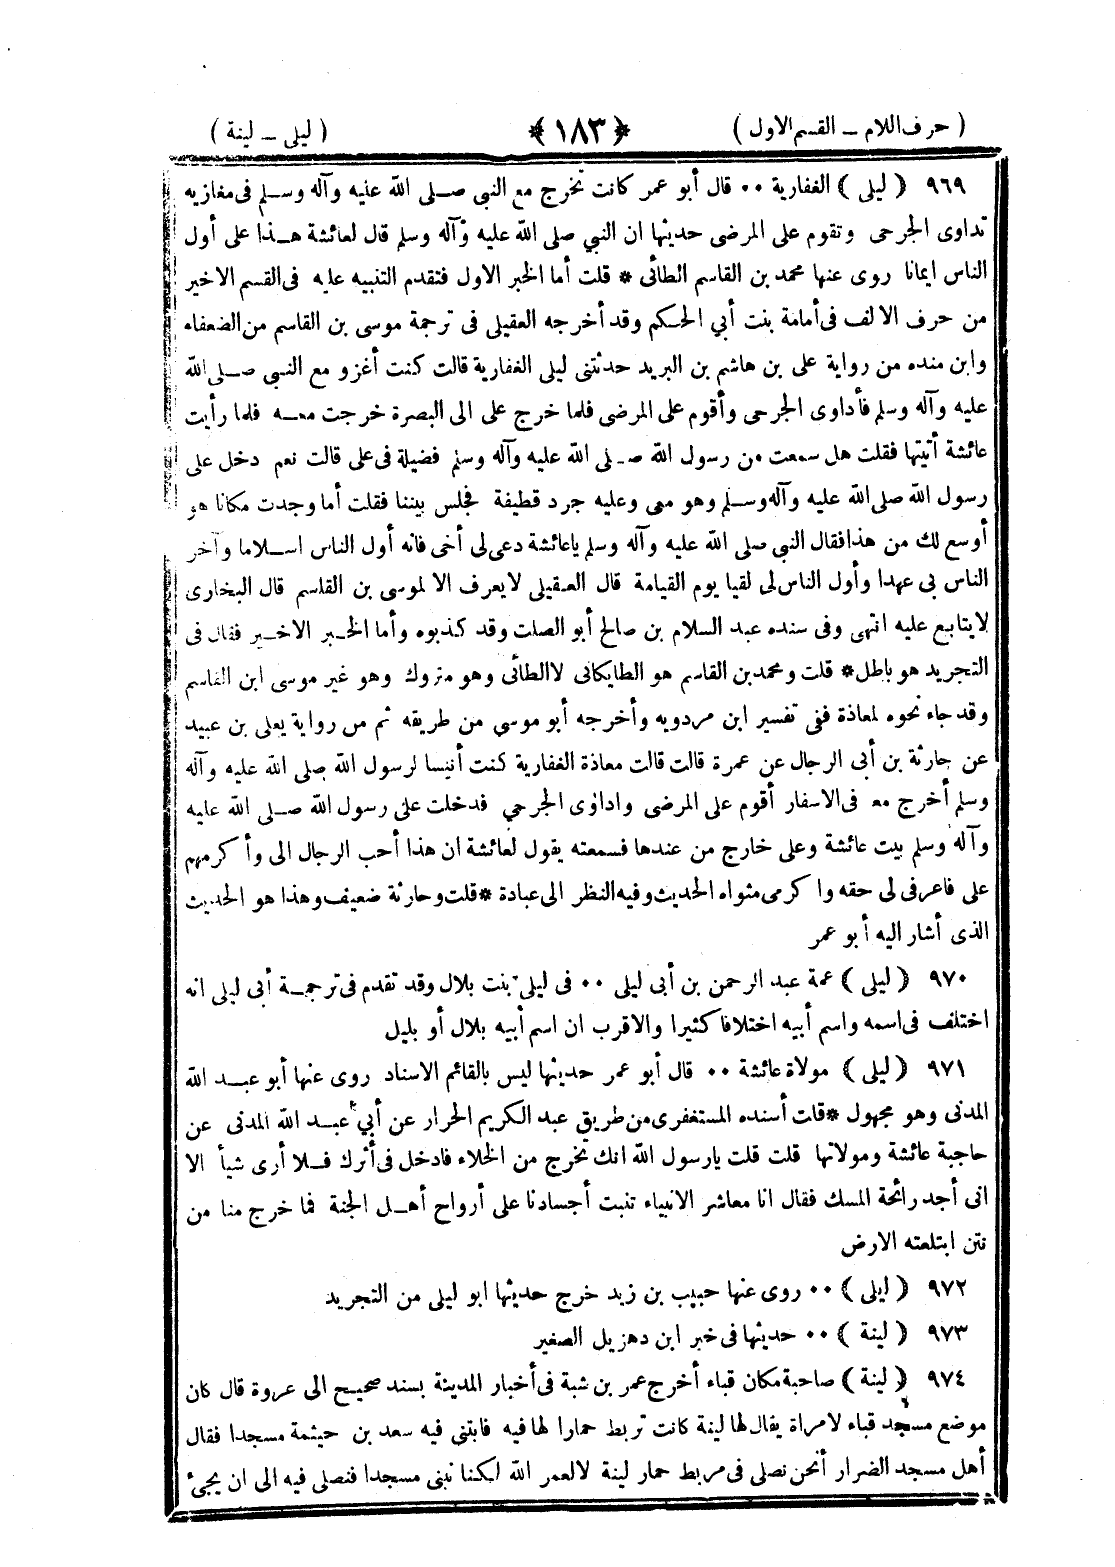 ( حرف اللام ــ القسم الاول ) ﴿١٨٣﴾ ( ليلى ــ لينة )
٩٦٩ ( ليلى ) الغفارية ٠٠ قال أبو عمر كانت تخرج مع النبي صلى الله عليه وآله وسلم فى مغازيه
تداوى الجرحى وتقوم على المرضى حديثها ان النبي صلى الله عليه وآله وسلم قال لعائشة هذا على أول
الناس ايمانا روى عنها محمد بن القاسم الطائى * قلت أما الخبر الاول فتقدم التنبيه عليه فى القسم الاخير
من حرف الالف فى أمامة بنت أبي الحكم وقد أخرجه العقيلى فى ترجمة موسى بن القاسم من الضعفاء
وابن منده من رواية على بن هاشم بن البريد حدثتنى ليلى الغفارية قالت كنت أغزو مع النبى صلى الله
عليه وآله وسلم فأداوى الجرحى وأقوم على المرضى فلما خرج على الى البصرة خرجت معه فلما رأيت
عائشة أتيتها فقلت هل سمعت من رسول الله صلى الله عليه وآله وسلم فضيلة فى على قالت نعم دخل على
رسول الله صلى الله عليه وآله وسلم وهو معى وعليه جرد قطيفة فجلس بيننا فقلت أما وجدت مكانا هو
أوسع لك من هذا فقال النبى صلى الله عليه وآله وسلم ياعائشة دعى لى أخى فانه أول الناس اسلاما وآخر
الناس بى عهدا وأول الناس لى لقيا يوم القيامة قال العقيلى لا يعرف الا لموسى بن القاسم قال البخارى
لا يتابع عليه انتهى وفى سنده عبد السلام بن صالح أبو الصلت وقد كذبوه وأما الخبر الاخير فقال فى
التجريد هو باطل * قلت ومحمد بن القاسم هو الطايكانى لا الطائى وهو متروك وهو غير موسى ابن القاسم
وقد جاء نحوه لمعاذة ففى تفسير ابن مردويه وأخرجه أبو موسى من طريقه ثم من رواية يعلى بن عبيد
عن حارثة بن أبى الرجال عن عمرة قالت قالت معاذة الغفارية كنت أنيسا لرسول الله صلى الله عليه وآله
وسلم أخرج معه فى الاسفار أقوم على المرضى واداوى الجرحى فدخلت على رسول الله صلى الله عليه
وآله وسلم بيت عائشة وعلى خارج من عندها فسمعته يقول لعائشة ان هذا أحب الرجال الى وأكرمهم
على فاعرفى لى حقه واكرمى مثواه الحديث وفيه النظر الى عبادة * قلت وحارثة ضعيف وهذا هو الحديث
الذى أشار اليه أبو عمر
٩٧٠ ( ليلى ) عمة عبد الرحمن بن أبى ليلى ٠٠ فى ليلى بنت بلال وقد تقدم فى ترجمة أبى ليلى انه
اختلف فى اسمه واسم أبيه اختلافا كثيرا والاقرب ان اسم أبيه بلال أو بليل
٩٧١ ( ليلى ) مولاة عائشة ٠٠ قال أبو عمر حديثها ليس بالقائم الاسناد روى عنها أبو عبد الله
المدنى وهو مجهول * قلت أسنده المستغفرى من طريق عبد الكريم الحرار عن أبي عبد الله المدنى عن
حاجبة عائشة ومولاتها قلت قلت يارسول الله انك تخرج من الخلاء فادخل فى أثرك فلا أرى شيأ الا
انى أجد رائحة المسك فقال انا معاشر الانبياء تنبت أجسادنا على أرواح أهل الجنة فما خرج منا من
نتن ابتلعته الارض
٩٧٢ ( ليلى ) ٠٠ روى عنها حبيب بن زيد خرج حديثها ابو ليلى من التجريد
٩٧٣ ( لينة ) ٠٠ حديثها فى خبر ابن دهزيل الصغير
٩٧٤ ( لينة ) صاحبة مكان قباء أخرج عمر بن شبة فى أخبار المدينة بسند صحيح الى عروة قال كان
موضع مسجد قباء لامراة يقال لها لينة كانت تربط حمارا لها فيه فابتنى فيه سعد بن حيثمة مسجدا فقال
أهل مسجد الضرار أنحن نصلى فى مربط حمار لينة لا لعمر الله لكنا نبنى مسجدا فنصلى فيه الى ان يجئ